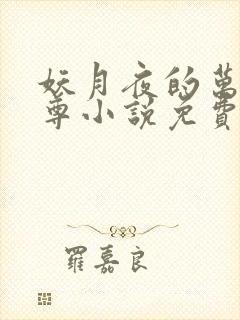 妖月夜的萬
尊小說免費
羅嘉良